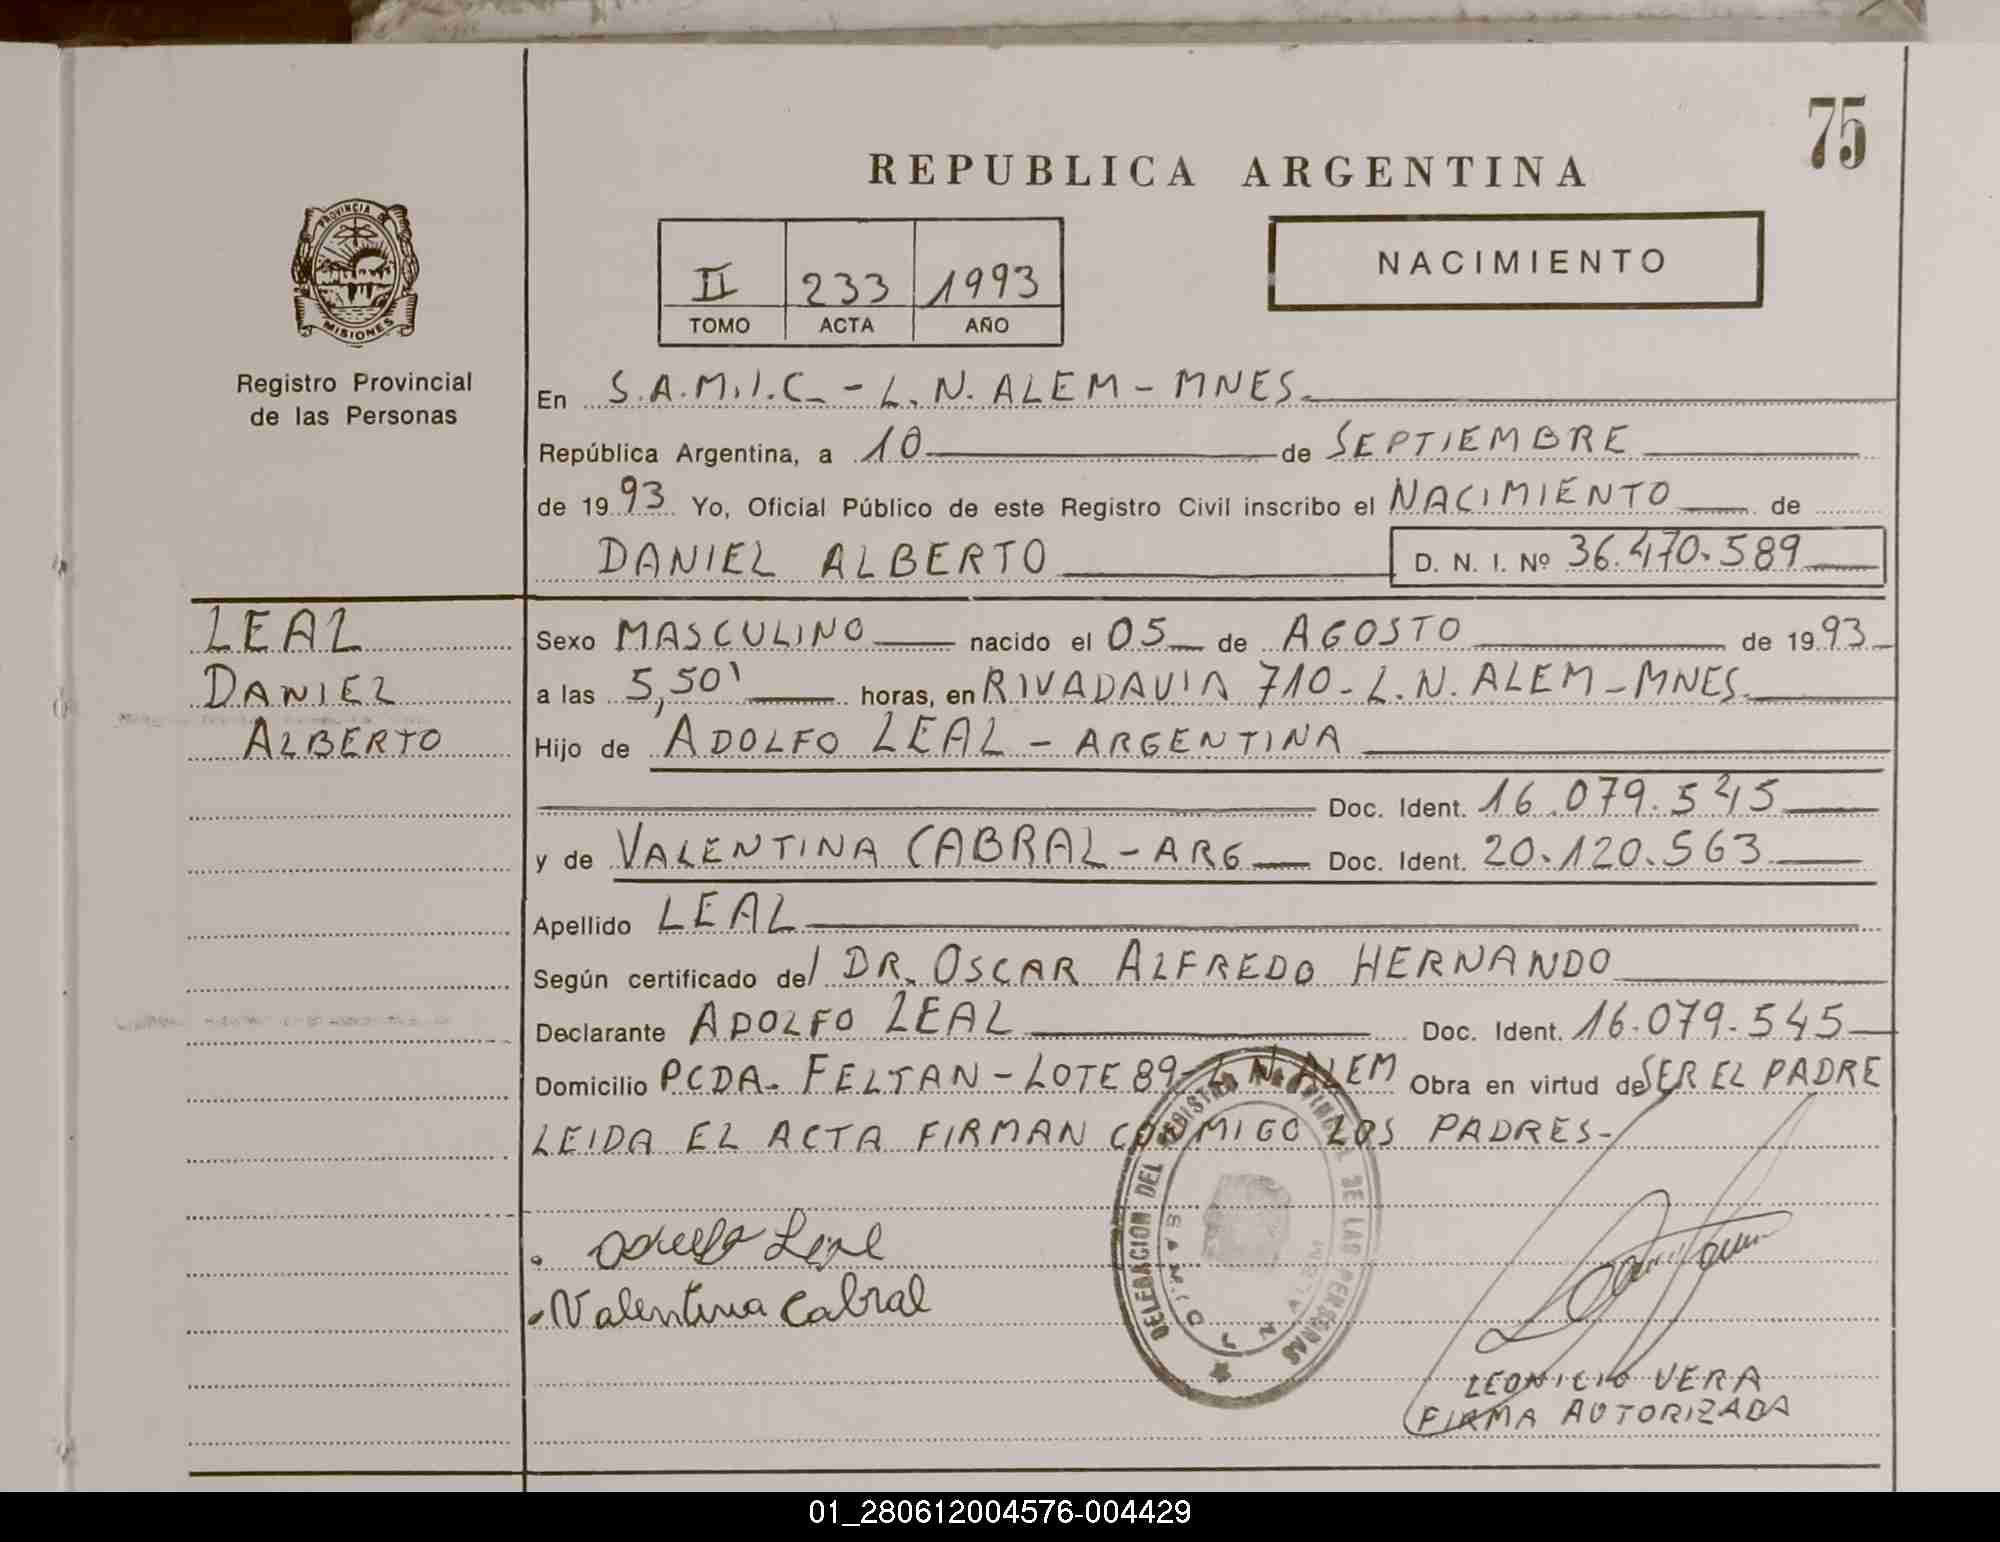 75
REPUBLICA ARGENTINA
PROVINCIA DE
MISIONES
Registro Provincial
de las Personas
II 233 1993
TOMO ACTA AÑO
NACIMIENTO
En S.A.M.I.C. - L.N. ALEM - MNES.
República Argentina, a 10 de SEPTIEMBRE
de 1993 Yo, Oficial Público de este Registro Civil inscribo el NACIMIENTO de
DANIEL ALBERTO D. N. I. Nº 36.470.589
LEAL
DANIEL
ALBERTO
Sexo MASCULINO nacido el 05 de AGOSTO de 1993
a las 5,50' horas, en RIVADAVIA 710 - L.N. ALEM - MNES.
Hijo de ADOLFO LEAL - ARGENTINA
Doc. Ident. 16.079.545
y de VALENTINA CABRAL - ARG Doc. Ident. 20.120.563
Apellido LEAL
Según certificado del DR. OSCAR ALFREDO HERNANDO
Declarante ADOLFO LEAL Doc. Ident. 16.079.545
Domicilio PCDA. FELTAN - LOTE 89 - L.N. ALEM Obra en virtud de SER EL PADRE
LEIDA EL ACTA FIRMAN CONMIGO LOS PADRES-
Leal
Valentina Cabral
DELEGACION DEL REGISTRO PROVINCIAL DE LAS PERSONAS
ALEM
LEONICIO VERA
FIRMA AUTORIZADA
01_280612004576-004429